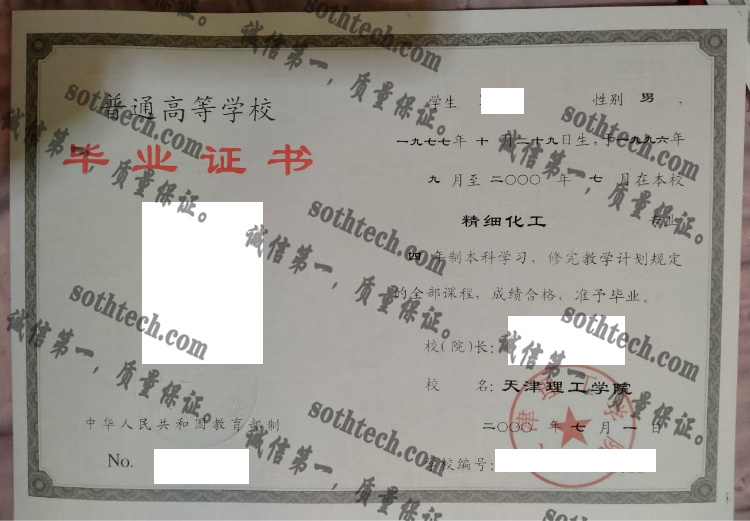 普通高等学校
毕业证书
中华人民共和国教育部制
No.
学生 性别 男 ,
一九七七年 十 月二十九日生,于一九九六年
九 月至 二〇〇〇 年 七 月在本校
精细化工 专业
四 年制本科学习,修完教学计划规定
的全部课程,成绩合格,准予毕业。
校(院)长:
校 名:天津理工学院
二〇〇〇 年 七 月 一 日
学校编号:
sothtech.com
诚信第一,质量保证。
sothtech.com
诚信第一,质量保证。
sothtech.com
诚信第一,质量保证。
sothtech.com
诚信第一,质量保证。
sothtech.com
诚信第一,质量保证。
sothtech.com
诚信第一,质量保证。
sothtech.com
诚信第一,质量保证。